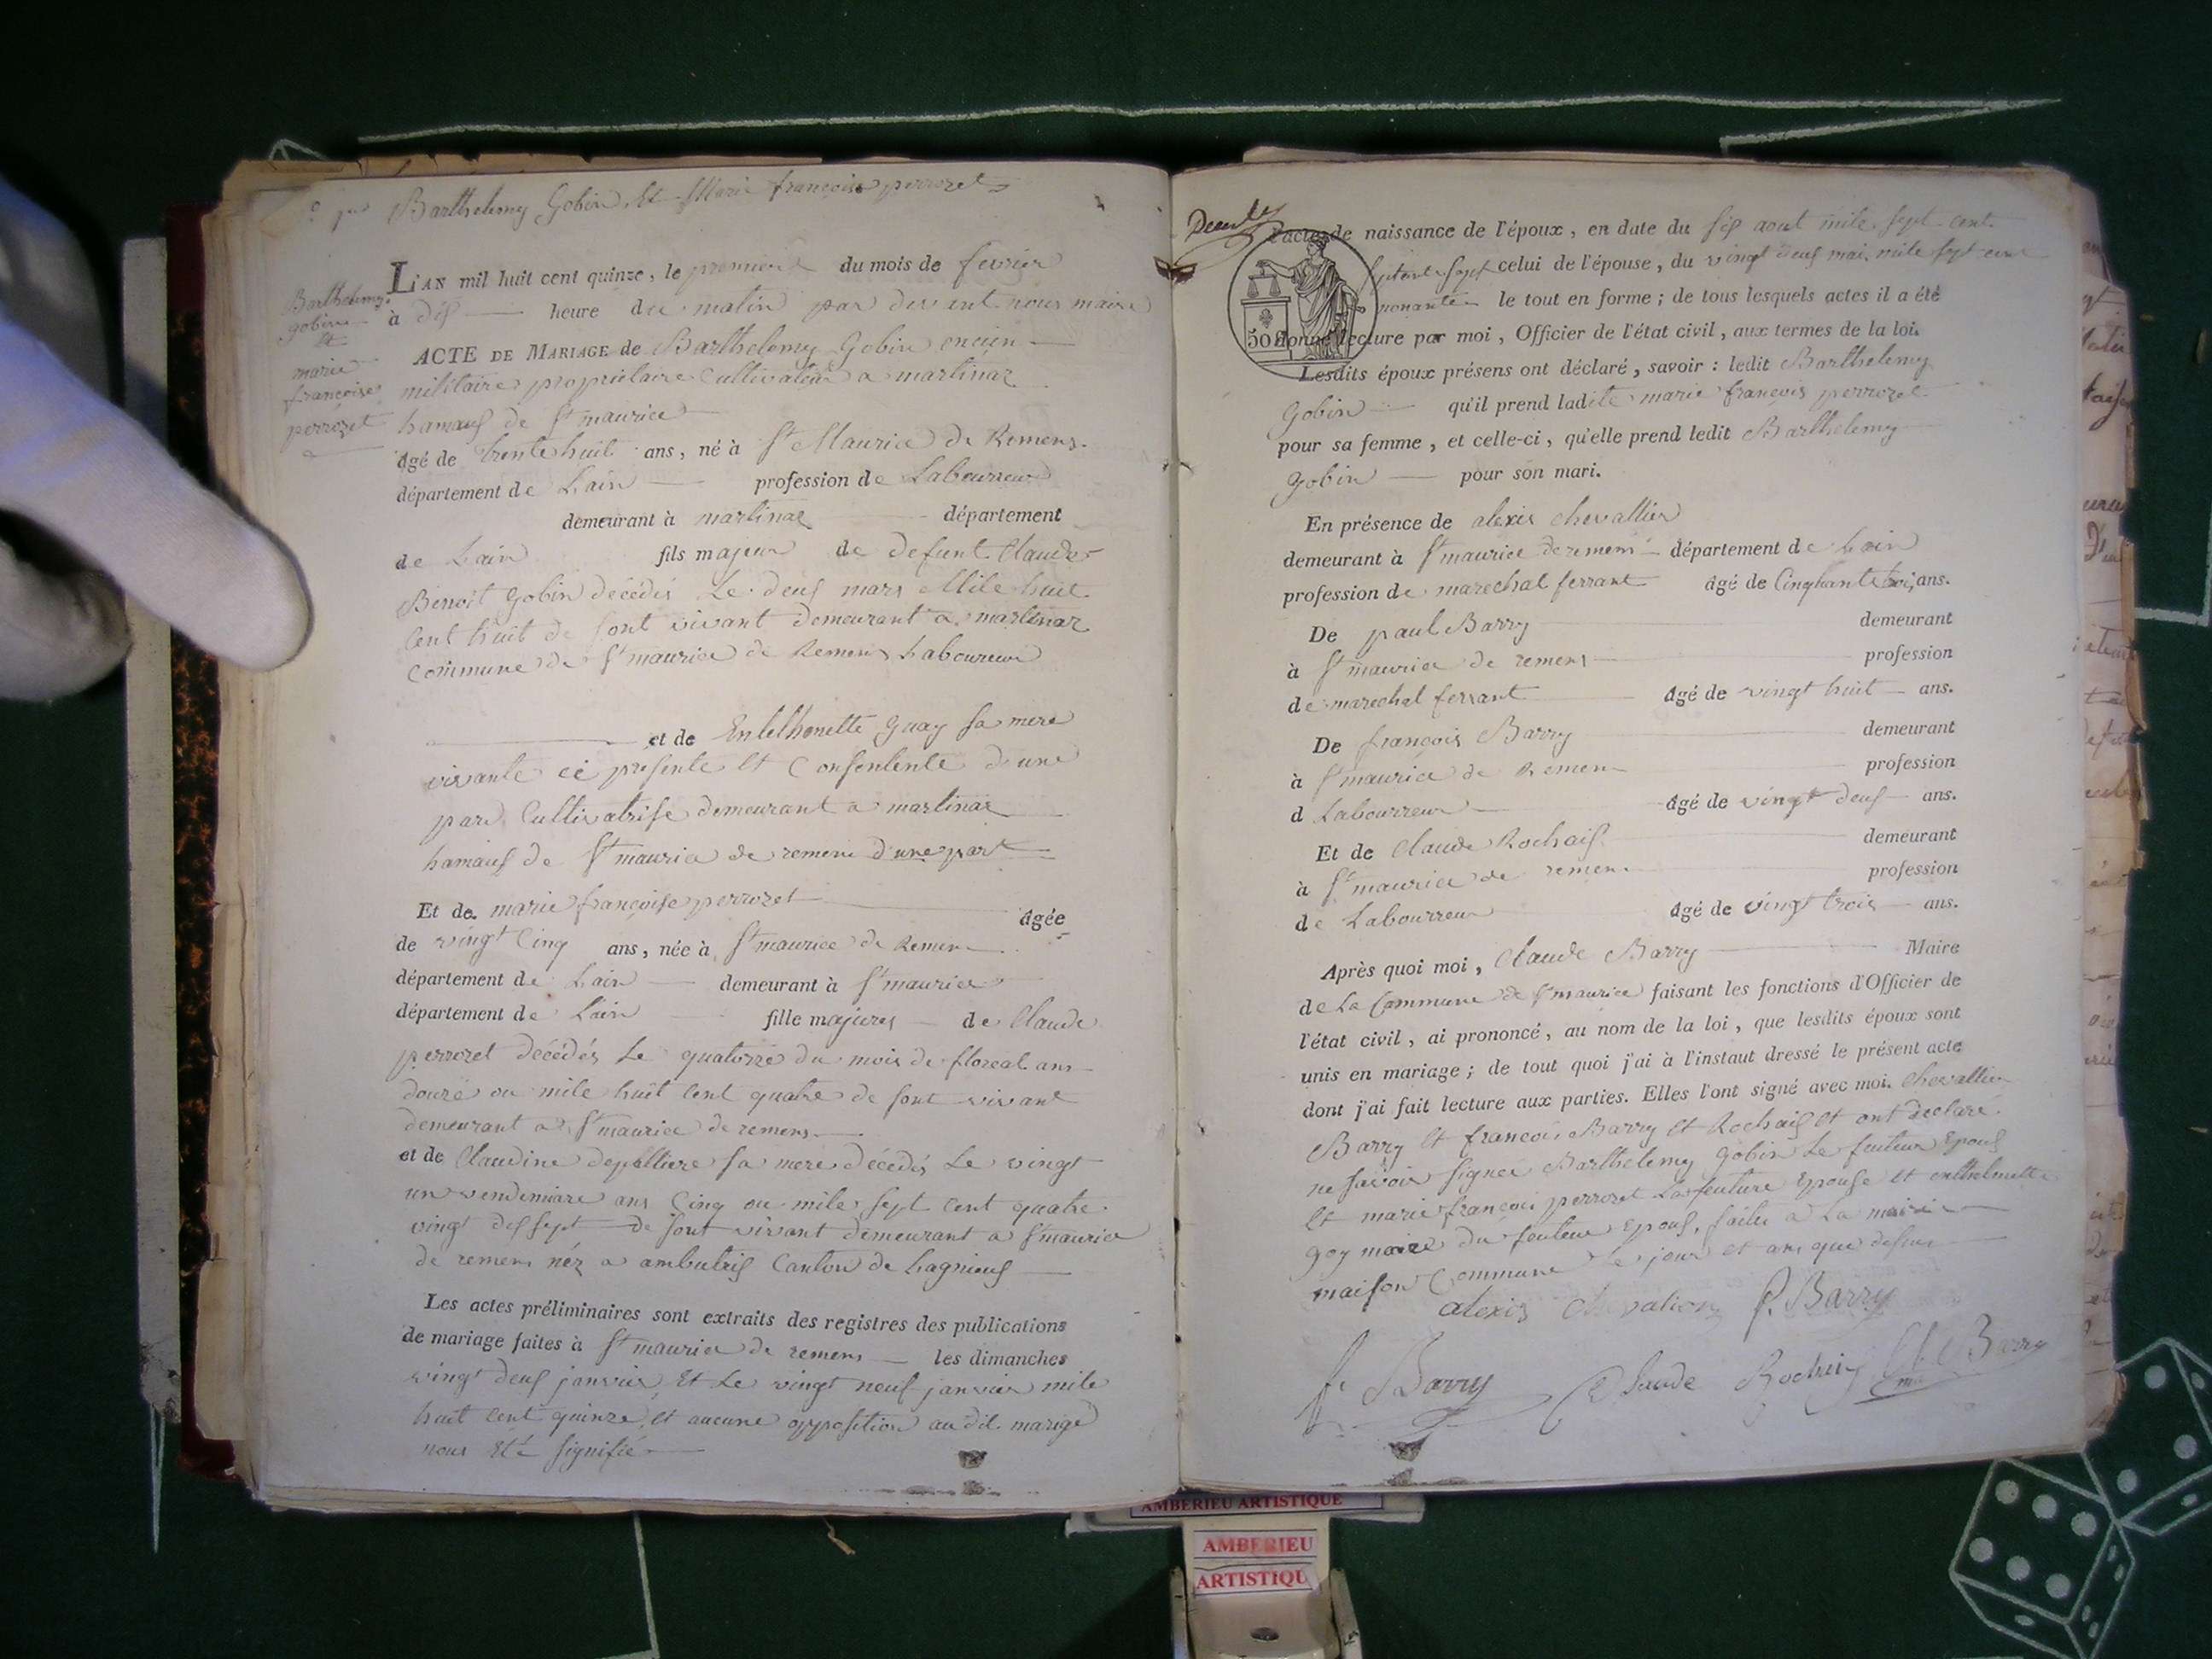 Barthelemy Gobin Et Marie françoise perrozet
Barthelemy
gobin
Et
marie
françoise
perrozet
L'AN mil huit cent quinze, le premier du mois de fevrier
à dis heure du matin par devant nous maire
ACTE DE MARIAGE de Barthelemy Gobin encien
militaire propriétaire Cultivateur a martinaz
hamaus de St maurice
âgé de trente huit ans, né à St Maurice de Remens
département de Lain profession de Laboureur
demeurant à martinaz département
de Lain fils majeur de defunt Claude
Benoit Gobin décédés Le deus mars Mile huit
Cent huit de sont vivant demeurant a martinaz
Commune de St maurice de Remens Laboureur
et de Entelhonette Guay sa mere
vivante ci presente Et Consentente d'une
part Cultivatrise demeurant a martinaz
hamaus de St maurice de remens d'une part
Et de marie françoise perrozet âgée
de vingt Cinq ans, née à St maurice de Remens
département de Lain demeurant à St maurice
département de Lain fille majures de Claude
perrozet décédés Le quatorze du mois de floreal ans
douze ou mile huit Cent quatre de sont vivant
demeurant a St maurice de remens
et de Claudine depilliere sa mere décédés Le vingt
un vendemiare ans Cinq ou mile sept Cent quatre
vingt dis sept de sont vivant demeurant a St maurice
de remens néz a ambutris Canton de Lagnieus
Les actes préliminaires sont extraits des registres des publications
de mariage faites à St maurice de remens les dimanches
vingt deus janvier Et Le vingt neuf janvier mile
huit Cent quinze, et aucune opposition au dit marige
nous Eté signifié
l'acte de naissance de l'époux, en date du sis aout mile sept cent
septante sept celui de l'épouse, du vingt deus mai mile sept cent
nonante le tout en forme; de tous lesquels actes il a été
50 donné lecture par moi, Officier de l'état civil, aux termes de la loi.
Lesdits époux présens ont déclaré, savoir : ledit Barthelemy
Gobin qu'il prend ladite marie françois perrozet
pour sa femme, et celle-ci, qu'elle prend ledit Barthelemy
Gobin pour son mari.
En présence de alexis chevallier
demeurant à St maurice de remens département de Lain
profession de marechal ferrant âgé de Cinquante troi, ans.
De paul Barry demeurant
à St maurice de remens profession
de marechal ferrant âgé de vingt huit ans.
De françois Barry demeurant
à St maurice de Remens profession
d Labourreur âgé de vingt deus ans.
Et de Claude Rochais demeurant
à St maurice de remens profession
de Labourreur âgé de vingt trois ans.
Après quoi moi, Claude Barry Maire
de La Commune de St maurice faisant les fonctions d'Officier de
l'état civil, ai prononcé, au nom de la loi, que lesdits époux sont
unis en mariage; de tout quoi j'ai à l'instaut dressé le présent acte
dont j'ai fait lecture aux parties. Elles l'ont signé avec moi. Chevallier
Barry Et françois Barry Et Rochais Et ont declaré
ne savoir signée Barthelemy Gobin Le feuteur Epous
Et marie françois perrozet La feuture Epouse et
goy maire du feuteur Epous, faites a La mairie
maison Commune Le jour et ans que dessus
alexis Chevalier P. Barry
f. Barry Claude Rochais Cl. Barry
AMBERIEU ARTISTIQUE
AMBERIEU
ARTISTIQU